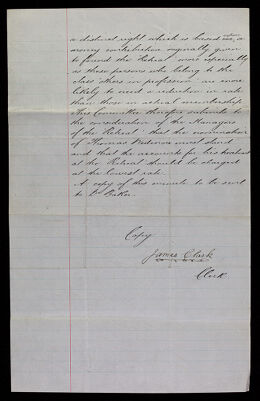 a distinct right which is based on a
money contribution originally given
to found the Retreat more especially
as those persons who belong to the
class "others in profession" are more
likely to need a reduction in rate
than those in actual membership
This Committee therefore submits to
the consideration of the Managers
of the Retreat that the nomination
of Thomas must stand
and that the accounts for his
at the Retreat should be charged
at the lowest rate.
A copy of this minute to be sent
to Dr Baker.
Copy
James Clark
Clerk